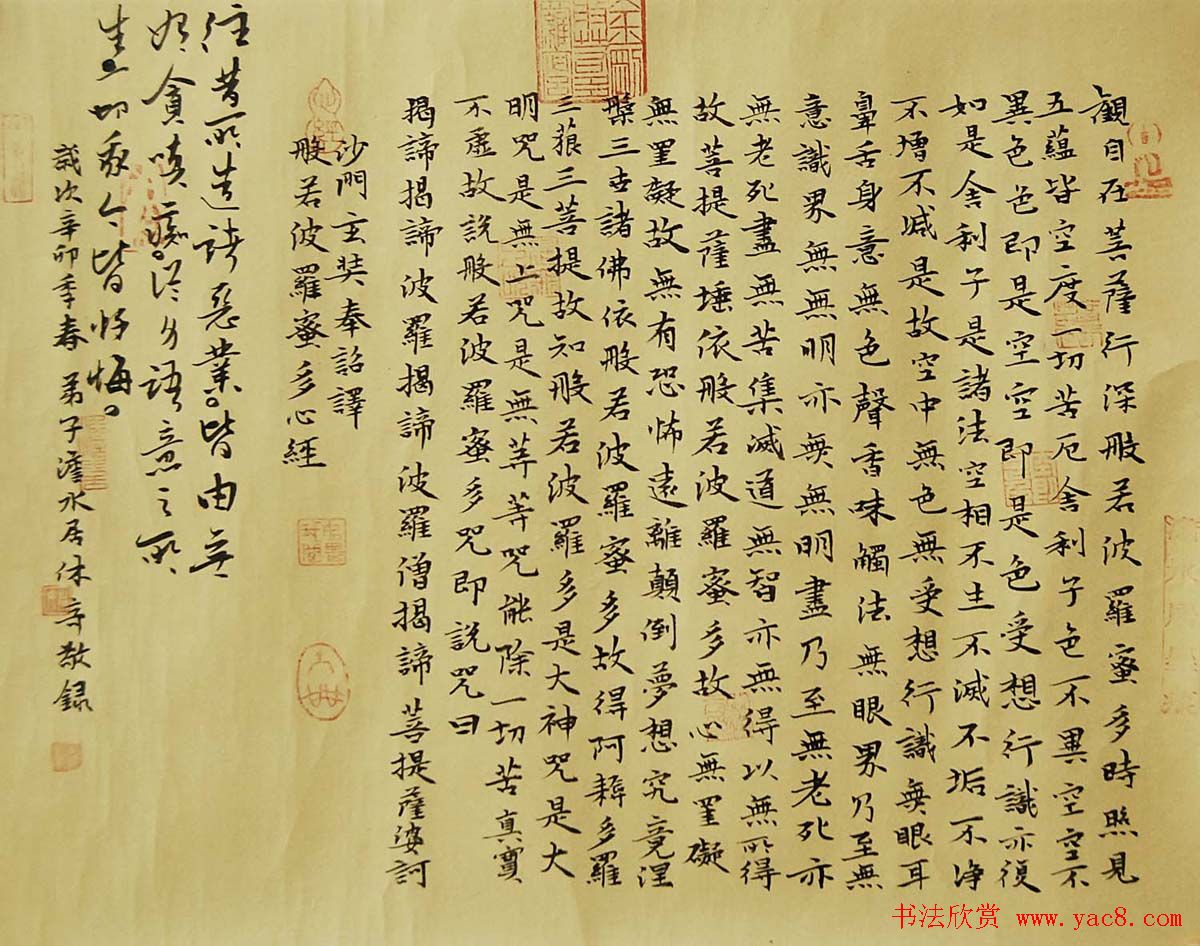 觀自在菩薩行深般若波羅蜜多時照見
五蘊皆空度一切苦厄舍利子色不異空空不
異色色即是空空即是色受想行識亦復
如是舍利子是諸法空相不生不滅不垢不净
不增不減是故空中無色無受想行識無眼耳
鼻舌身意無色聲香味觸法無眼界乃至無
意識界無無明亦無無明盡乃至無老死亦
無老死盡無苦集滅道無智亦無得以無所得
故菩提薩埵依般若波羅蜜多故心無罣礙
無罣礙故無有恐怖遠離顛倒夢想究竟涅
槃三世諸佛依般若波羅蜜多故得阿耨多羅
三藐三菩提故知般若波羅多是大神咒是大
明咒是無上咒是無等等咒能除一切苦真實
不虛故說般若波羅蜜多咒即說咒曰
揭諦揭諦波羅揭諦波羅僧揭諦菩提薩婆訶
沙門玄奘奉詔譯
般若波羅蜜多心經
往昔所造諸惡業。皆由无
始貪嗔癡。從身語意之所
生。一切我今皆懺悔。
歲次辛卯季春 弟子澹水居休寧敬録
书法欣赏 www.yac8.com